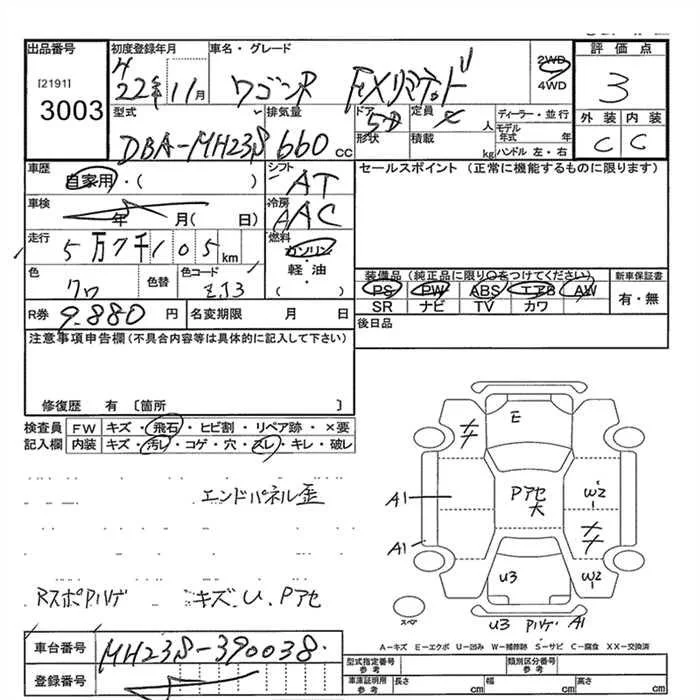 出品番号 初度登録年月 車名・グレード 評価点
[2191]
3003
4
22年 11月 ワゴンR FXリミテッド 2WD 4WD 3
型式 排気量 ドア形状 定員 人 ディーラー・並行 外装 内装
DBA-MH23S 660cc 5D 積載 kg モデル年式 年 ハンドル 左・右 C C
車歴 自家用・( ) シフト AT セールスポイント (正常に機能するものに限ります)
車検 年 月( 日) 冷房 AAC
走行 5万7千105km 燃料 ガソリン 軽・油 ( )
色 クロ 色替 色コード ZJ3
装備品(純正品に限り○をつけてください) 新車保証書
PS PW ABS エアB AW 有・無
SR ナビ TV カワ
R券 9.880円 名変期限 月 日 後日品
注意事項申告欄(不具合内容等は具体的に記入して下さい)
修復歴 有 〔箇所 〕
検査員記入欄 FW キズ・飛石・ヒビ割・リペア跡・×要
内装 キズ・汚レ・コゲ・穴・スレ・キレ・破レ
エンドパネル歪
RスポPハゲ キズ.U.Pアセ
E
XX
A1 Pアセ大 W2
A1 XX
U3 W2
スペア U3 Pハゲ A1
A-キズ E-エクボ U-凹み W-補修跡 S-サビ C-腐食 XX-交換済
車台番号 MH23S-390038.
登録番号
型式指定番号参考 類別区分番号参考
車庫証明用参考 長さ cm 幅 cm 高さ cm